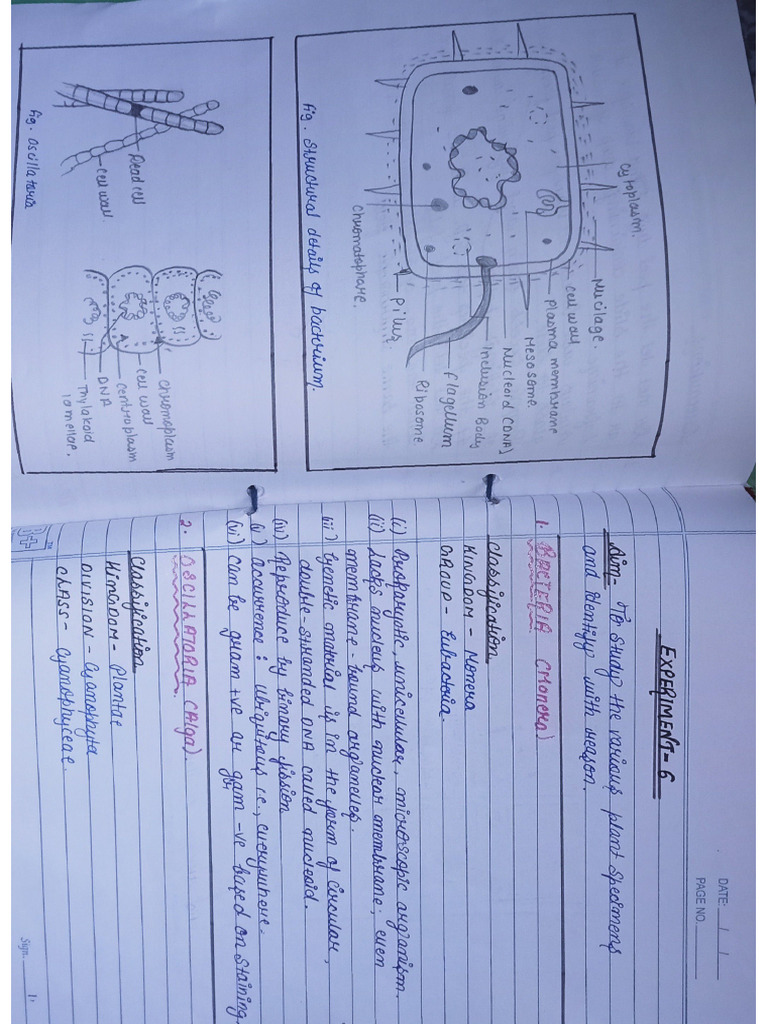 cytoplasm.
Mucilage.
cell wall
plasma membrane
Mesosome.
Nucleoid (DNA)
Inclusion Body
flagellum
Ribosome
Pilus.
chromatophore.
fig. Structural details of bacterium.
Dead cell
cell wall.
chromoplasm
cell wall
centroplasm
DNA
Thylakoid
lamellae.
fig. Oscillatoria
DATE: / /
PAGE NO.
EXPERIMENT-6
Aim- To study the various plant specimens
and identify with reason.
1. BACTERIA (Monera)
Classification
KINGDOM - Monera
GROUP - Eubacteria.
(i) Prokaryotic unicellular, microscopic organism.
(ii) Lacks nucleus with nuclear membrane; even
membrane-bound organelles.
(iii) Genetic material is in the form of circular,
double-stranded DNA called nucleoid.
(iv) Reproduce by binary fission
(v) Occurrence: Ubiquitous i.e., everywhere.
(vi) Can be gram +ve or gram -ve based on staining.
2. OSCILLATORIA (Alga).
Classification
KINGDOM - Plantae
DIVISION - Cyanophyta
CLASS - Cyanophyceae.
B+
Sign.